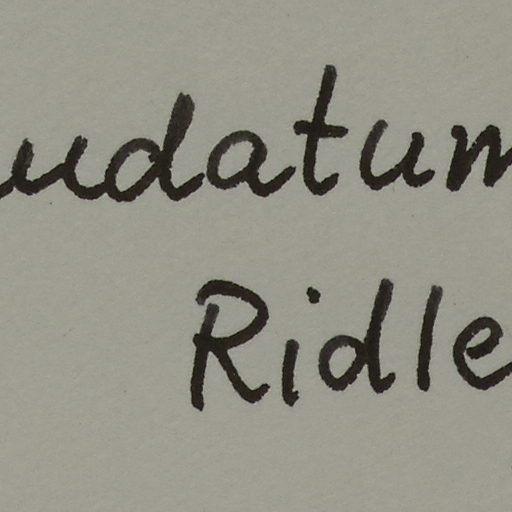 udatum
Ridle